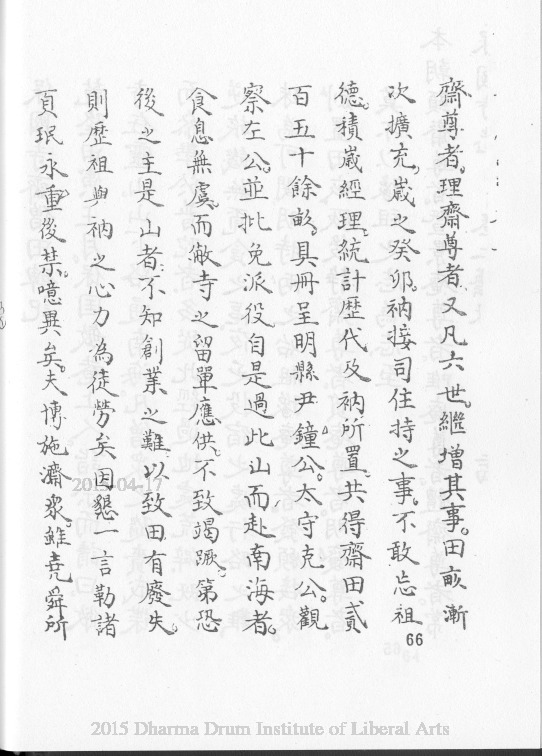 齋尊者。理齋尊者。又凡六世。繼增其事。田畝漸
次擴充。歲之癸卯。衲接司住持之事。不敢忘祖
德。積歲經理。統計歷代及衲所置。共得齋田貳
百五十餘畝。具冊呈明縣尹鐘公。太守克公。觀
察左公。並批免派役。自是過此山而赴南海者。
食息無虞。而敝寺之留單應供。不致竭蹶。第恐
後之主是山者。不知創業之難。以致田有廢失。
則歷祖與衲之心力為徒勞矣。因懇一言勒諸
貢珉。永重後禁。噫異矣。夫博施濟眾。雖堯舜所
66
2015 Dharma Drum Institute of Liberal Arts